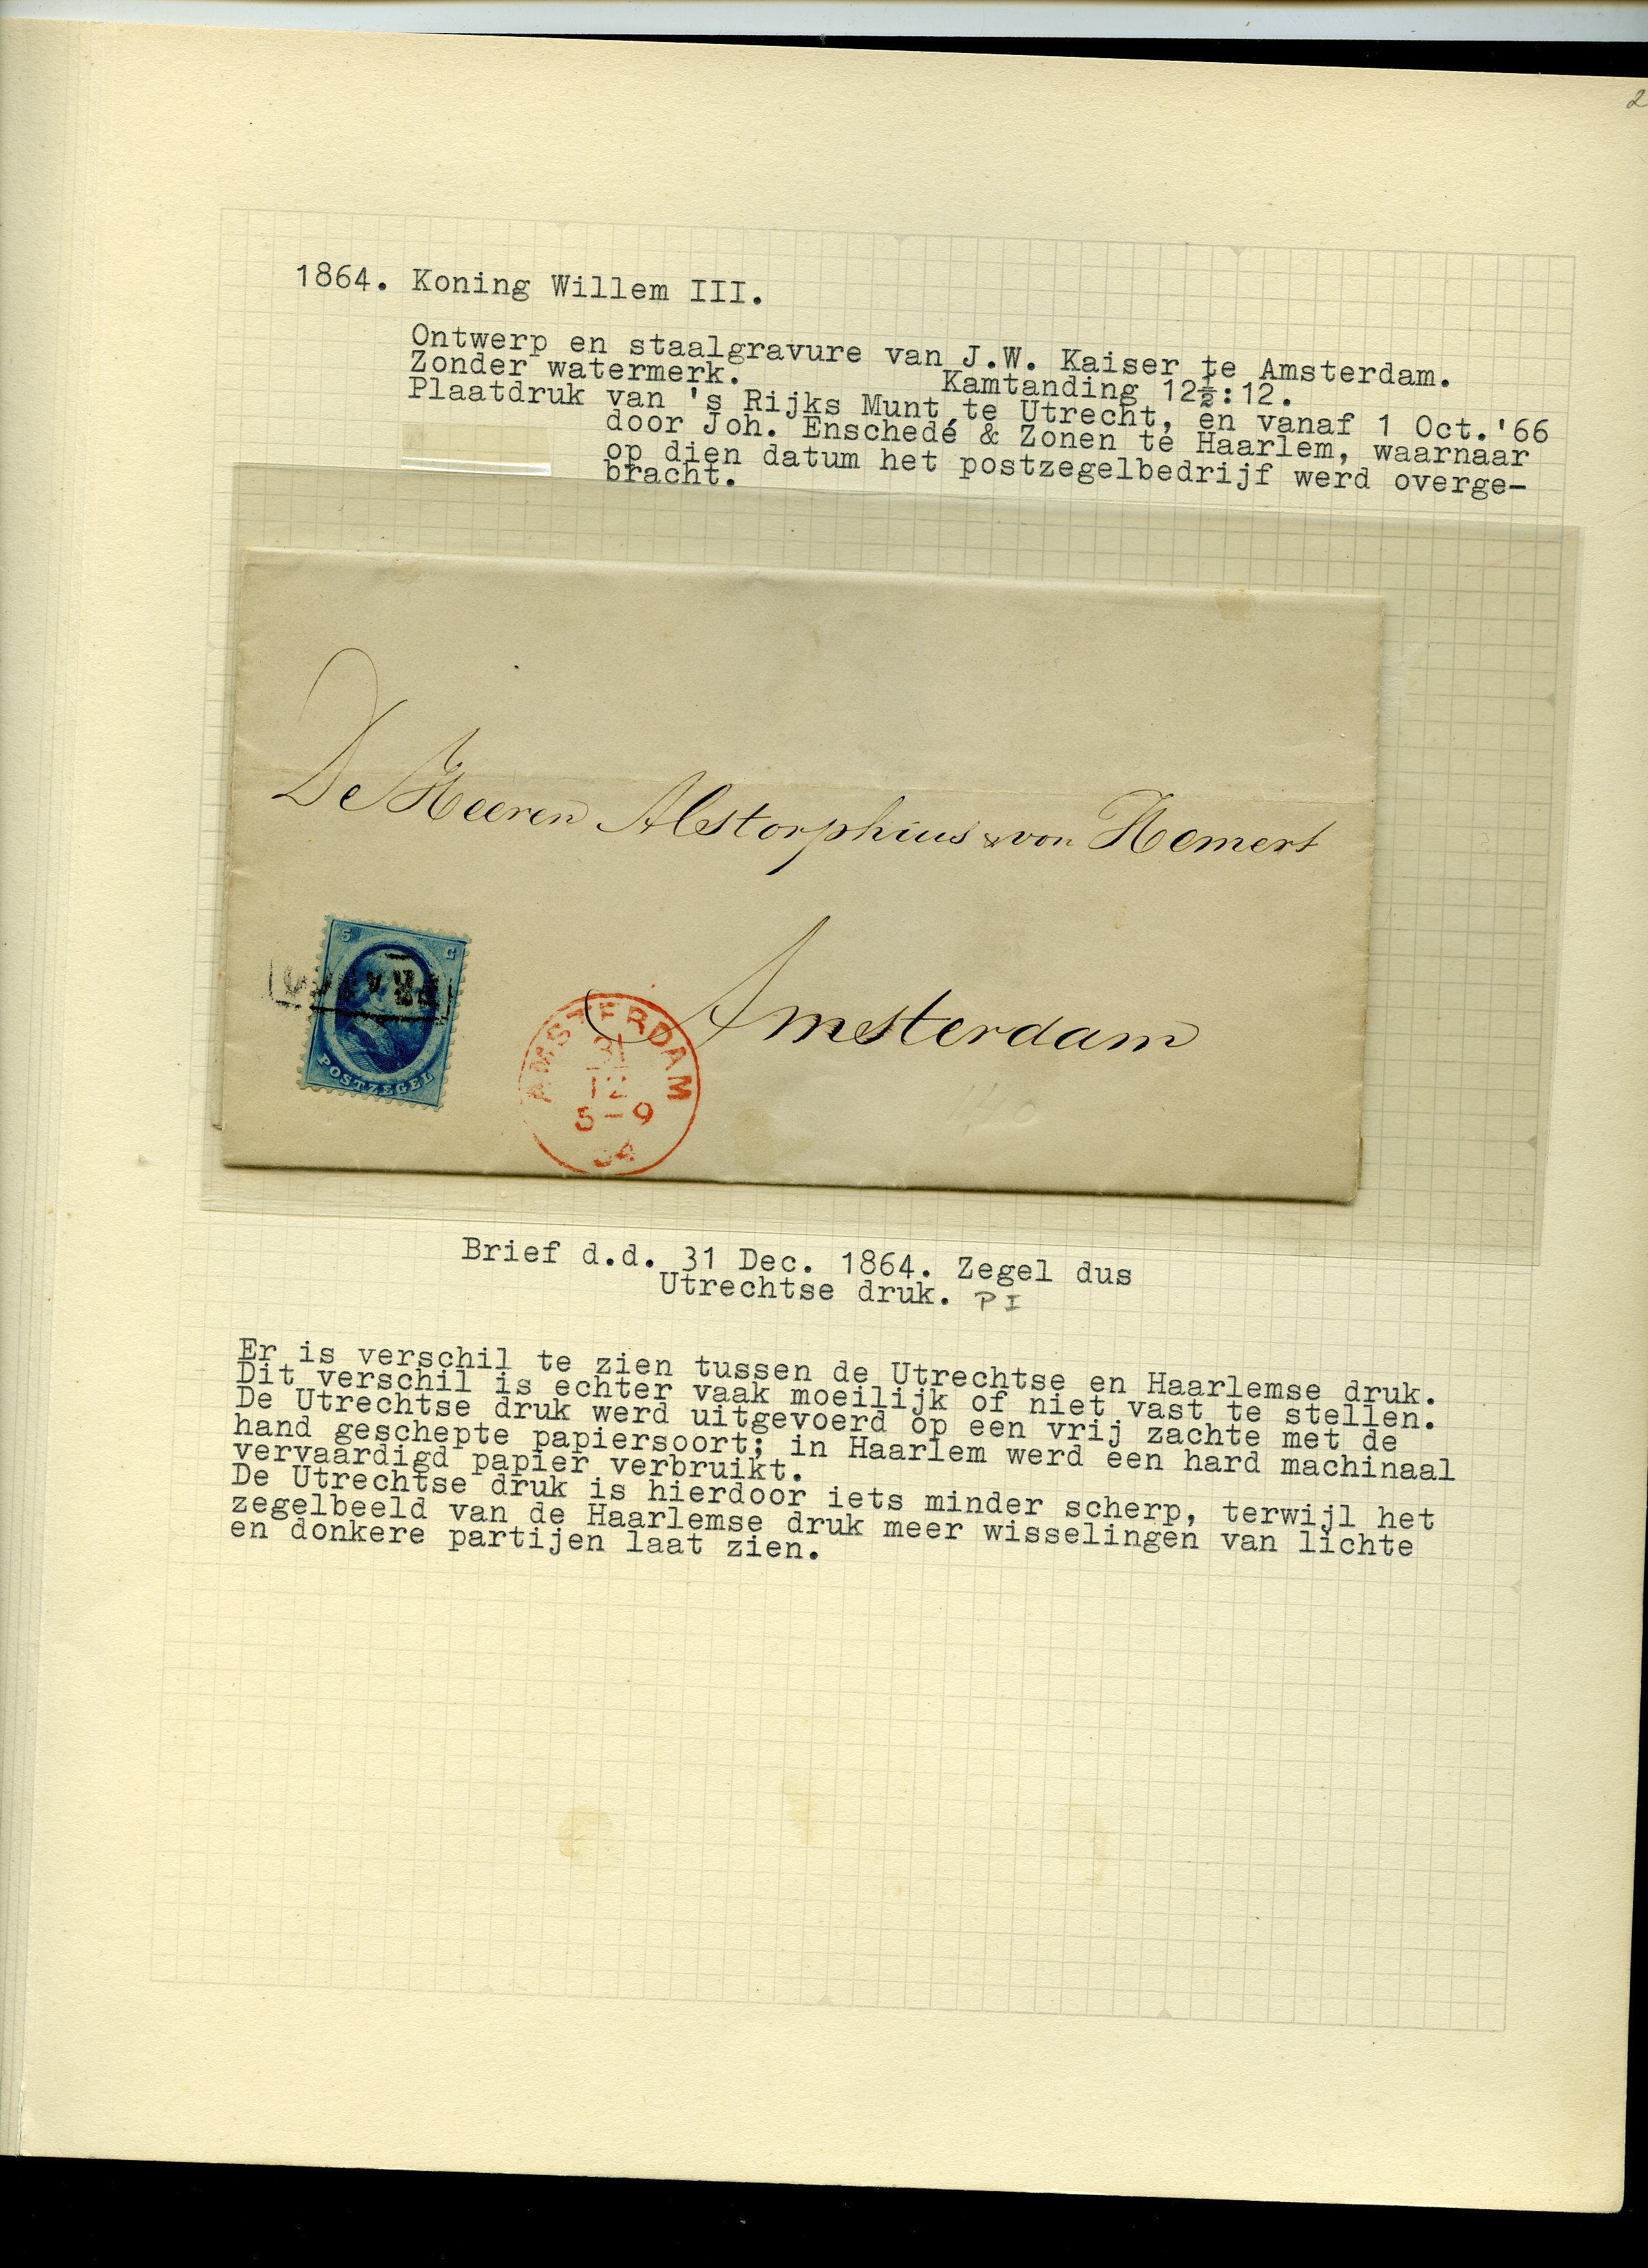 2
1864. Koning Willem III.
Ontwerp en staalgravure van J.W. Kaiser te Amsterdam.
Zonder watermerk. Kamtanding 12½:12.
Plaatdruk van 's Rijks Munt te Utrecht, en vanaf 1 Oct.'66
door Joh. Enschedé & Zonen te Haarlem, waarnaar
op dien datum het postzegelbedrijf werd overge-
bracht.
De Heeren Alstorphius & von Hemert
Amsterdam
5 C
FRANCO
POSTZEGEL
AMSTERDAM
31
12
5-9
64
Brief d.d. 31 Dec. 1864. Zegel dus
Utrechtse druk. PI
Er is verschil te zien tussen de Utrechtse en Haarlemse druk.
Dit verschil is echter vaak moeilijk of niet vast te stellen.
De Utrechtse druk werd uitgevoerd op een vrij zachte met de
hand geschepte papiersoort; in Haarlem werd een hard machinaal
vervaardigd papier verbruikt.
De Utrechtse druk is hierdoor iets minder scherp, terwijl het
zegelbeeld van de Haarlemse druk meer wisselingen van lichte
en donkere partijen laat zien.